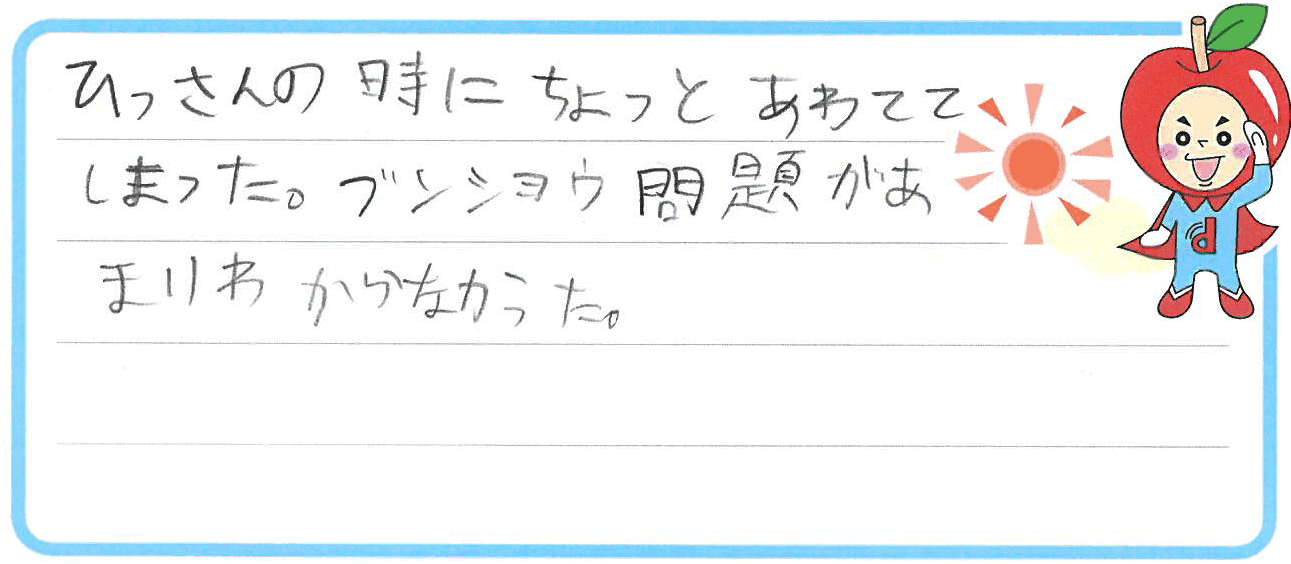 ひっさんの時にちょっとあわてて
しまった。ブンショウ問題があ
まりわからなかった。
d